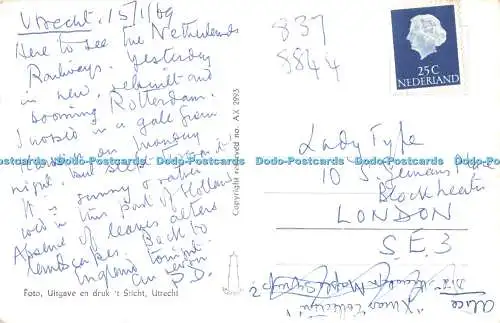 Utrecht. 15/1/69
Here to see the Netherlands
Railways. Yesterday
in new, rebuilt and
booming Rotterdam.
I crossed in a gale from
Harwich on Monday
night, but slept through it
It is sunny & rather
cold in this part of Holland
Absence of leaves alters
landscapes. Back to
England tonight.
P.D.
Foto, Uitgave en druk 't Sticht, Utrecht
Copyright reserved no. AX 2993
837
8844
25C
NEDERLAND
Lady Fyfe
10 St. Germans Place
Blackheath
LONDON
S.E.3
Alice
"Xmas Collection"
Data-Postcards Data-Postcards Data-Postcards Data-Postcards Data-Postcards Data-Postcards